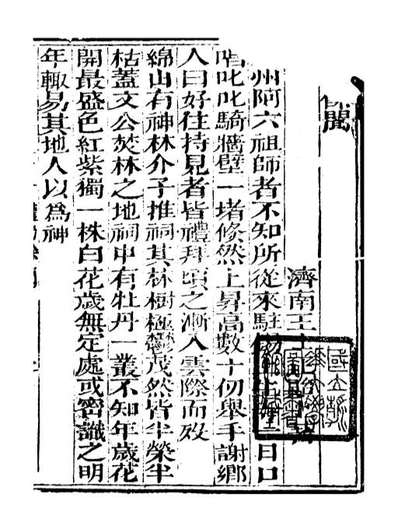 濟南王士
州阿六祖師者不知所從來駐日口
唱叱叱騎牆壁一堵倏然上昇高數十仞舉手謝鄉
人曰好住持見者皆禮拜頃之漸入雲際而歿
綿山有神林介子推祠其林樹極茂然皆半榮半
枯蓋文公焚林之地祠中有牡丹一叢不知年歲花
開最盛色紅紫獨一株白花歲無定處或密識之明
年輒易其地人以爲神